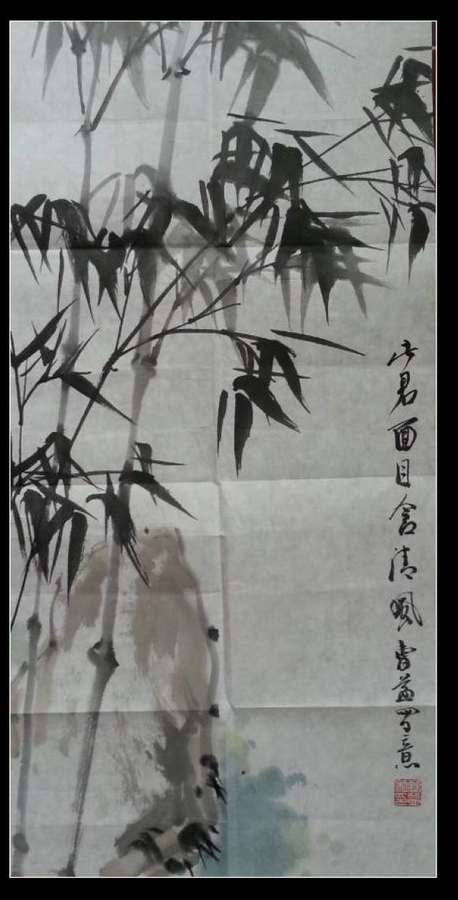 此君面目含清風曹益写意